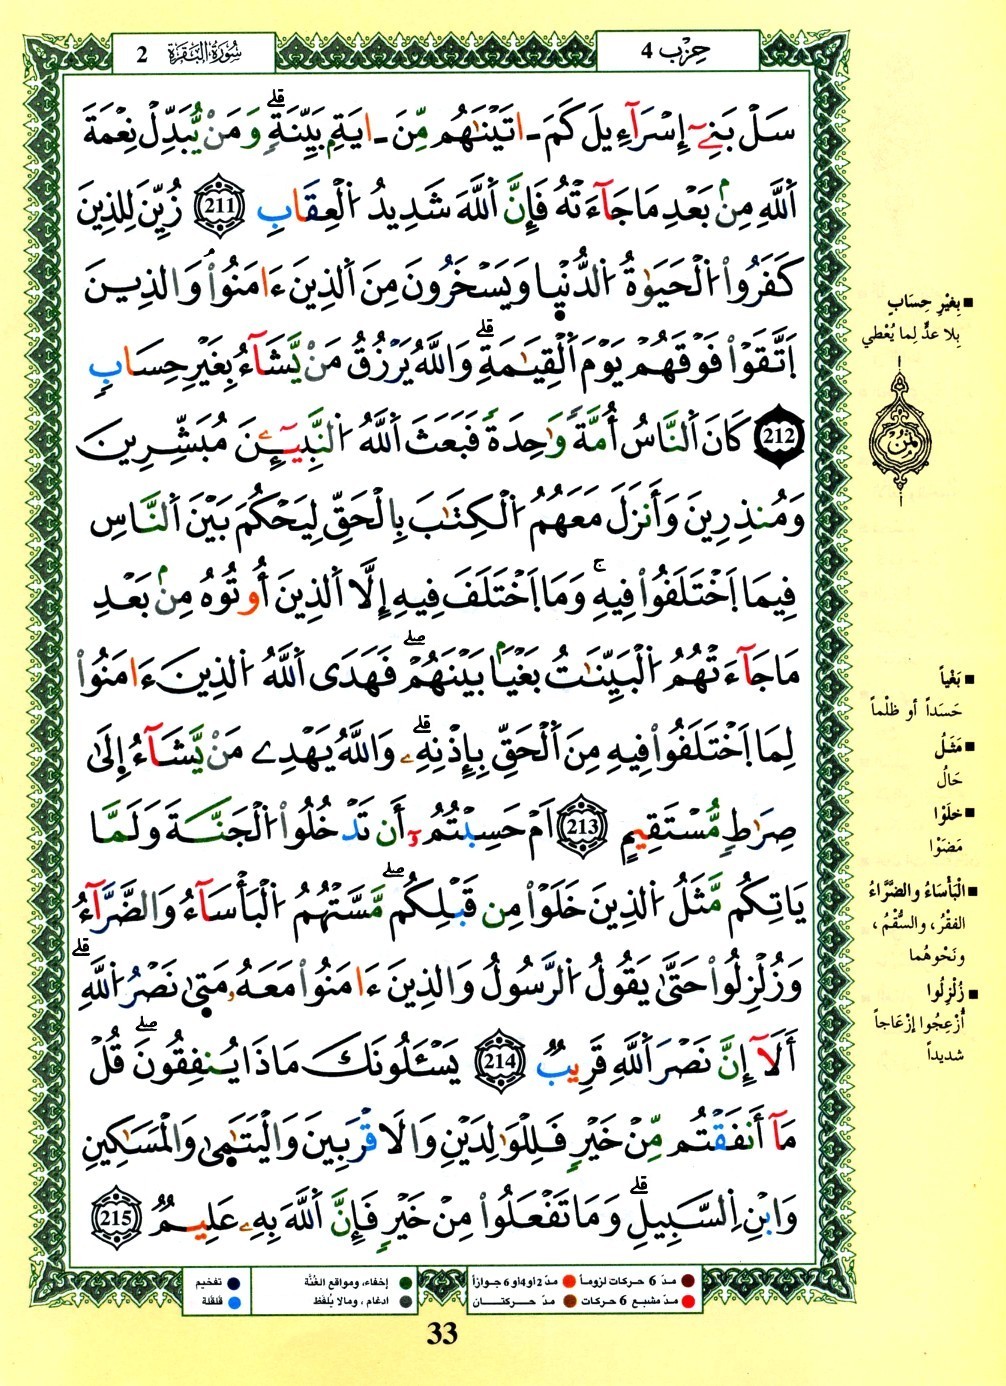 حِزْب 4
سُورَةُ البَقَرَة 2
سَلْ بَنِےٓ إِسْرَآءِيلَ كَمَ ـ اتَيْنَٰهُم مِّنَ ـ ايَةِۢ بَيِّنَةٖۖ وَمَنْ يُّبَدِّلْ نِعْمَةَ
اَ۬للَّهِ مِنۢ بَعْدِ مَا جَآءَتْهُ فَإِنَّ اَ۬للَّهَ شَدِيدُ اُ۬لْعِقَابِ 211 زُيِّنَ لِلذِينَ
كَفَرُواْ اُ۬لْحَيَوٰةُ اُ۬لدُّنْيٜا وَيَسْخَرُونَ مِنَ اَ۬لذِينَ ءَامَنُواْ وَالذِينَ
اَ۪تَّقَوْاْ فَوْقَهُمْ يَوْمَ اَ۬لْقِيَٰمَةِۖ وَاللَّهُ يَرْزُقُ مَنْ يَّشَآءُ بِغَيْرِ حِسَابٖ
212 كَانَ اَ۬لنَّاسُ أُمَّةٗ وَٰحِدَةٗ فَبَعَثَ اَ۬للَّهُ اُ۬لنَّبِيٓـِٕۧنَ مُبَشِّرِينَ
وَمُنذِرِينَ وَأَنزَلَ مَعَهُمُ اُ۬لْكِتَٰبَ بِالْحَقِّ لِيَحْكُمَ بَيْنَ اَ۬لنَّاسِ
فِيمَا اَ۪خْتَلَفُواْ فِيهِۚ وَمَا اَ۪خْتَلَفَ فِيهِ إِلَّا اَ۬لذِينَ أُوتُوهُ مِنۢ بَعْدِ
مَا جَآءَتْهُمُ اُ۬لْبَيِّنَٰتُ بَغْيَاۢ بَيْنَهُمْۖ فَهَدَى اَ۬للَّهُ اُ۬لذِينَ ءَامَنُواْ
لِمَا اَ۪خْتَلَفُواْ فِيهِ مِنَ اَ۬لْحَقِّ بِإِذْنِهِۦۖ وَاللَّهُ يَهْدِے مَنْ يَّشَآءُ إِلَىٰ
صِرَٰطٖ مُّسْتَقِيمٍ 213 اَمْ حَسِبْتُمُۥٓ أَن تَدْخُلُواْ اُ۬لْجَنَّةَ وَلَمَّا
يَاتِكُم مَّثَلُ اُ۬لذِينَ خَلَوْاْ مِن قَبْلِكُمۖ مَّسَّتْهُمُ اُ۬لْبَأْسَآءُ وَالضَّرَّآءُ
وَزُلْزِلُواْ حَتَّىٰ يَقُولُ اُ۬لرَّسُولُ وَالذِينَ ءَامَنُواْ مَعَهُۥ مَتٜىٰ نَصْرُ اُ۬للَّهِۖ
أَلَآ إِنَّ نَصْرَ اَ۬للَّهِ قَرِيبٞ 214 يَسْـَٔلُونَكَ مَاذَا يُنفِقُونَۖ قُلْ
مَآ أَنفَقْتُم مِّنْ خَيْرٖ فَلِلْوَٰلِدَيْنِ وَالَاقْرَبِينَ وَالْيَتَٰمٜىٰ وَالْمَسَٰكِينِ
وَابْنِ اِ۬لسَّبِيلِۖ وَمَا تَفْعَلُواْ مِنْ خَيْرٖ فَإِنَّ اَ۬للَّهَ بِهِۦ عَلِيمٞ 215
■ بِغَيْرِ حِسَابٍ
بِلا عدٍّ لِما يُعْطي
■ بَغْياً
حَسَداً أو ظلْماً
■ مَثَلُ
حَالُ
■ خلَوْا
مَضَوْا
■ الْبَأْسَاءُ والضَّرَّاءُ
الفقْرُ، والسُّقْمُ،
ونَحْوهُما
■ زُلْزِلُوا
أُزْعِجُوا إزْعَاجاً
شديداً
● مدّ 6 حركات لزوماً ● مدّ 2 او 4 او 6 جوازاً
● مدّ مشبع 6 حركات ● مدّ حركتـــان
● إخفاء، ومواقع الغُنَّة
● ادغام، ومالا يُلفَظ
● تفخيم
● قلقلة
33